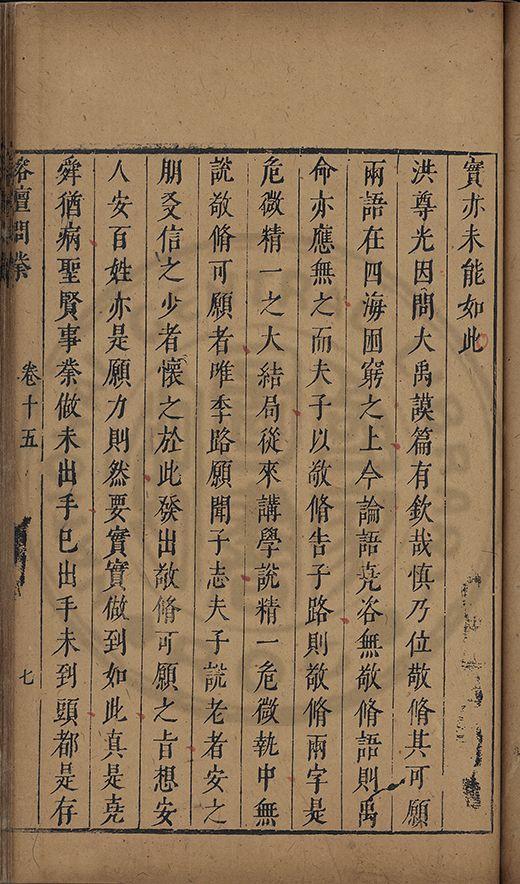 實亦未能如此
洪尊光因問大禹謨篇有欽哉慎乃位敬脩其可願
兩語在四海困窮之上今論語堯咨無敬脩語則禹
命亦應無之而夫子以敬脩告子路則敬脩兩字是
危微精一之大結局從來講學說精一危微執中無
說敬脩可願者唯季路願聞子志夫子說老者安之
朋友信之少者懷之於此發出敬脩可願之旨想安
人安百姓亦是願力則然要實實做到如此真是堯
舜猶病聖賢事業做未出手巳出手未到頭都是存
榕壇問業
卷十五
七